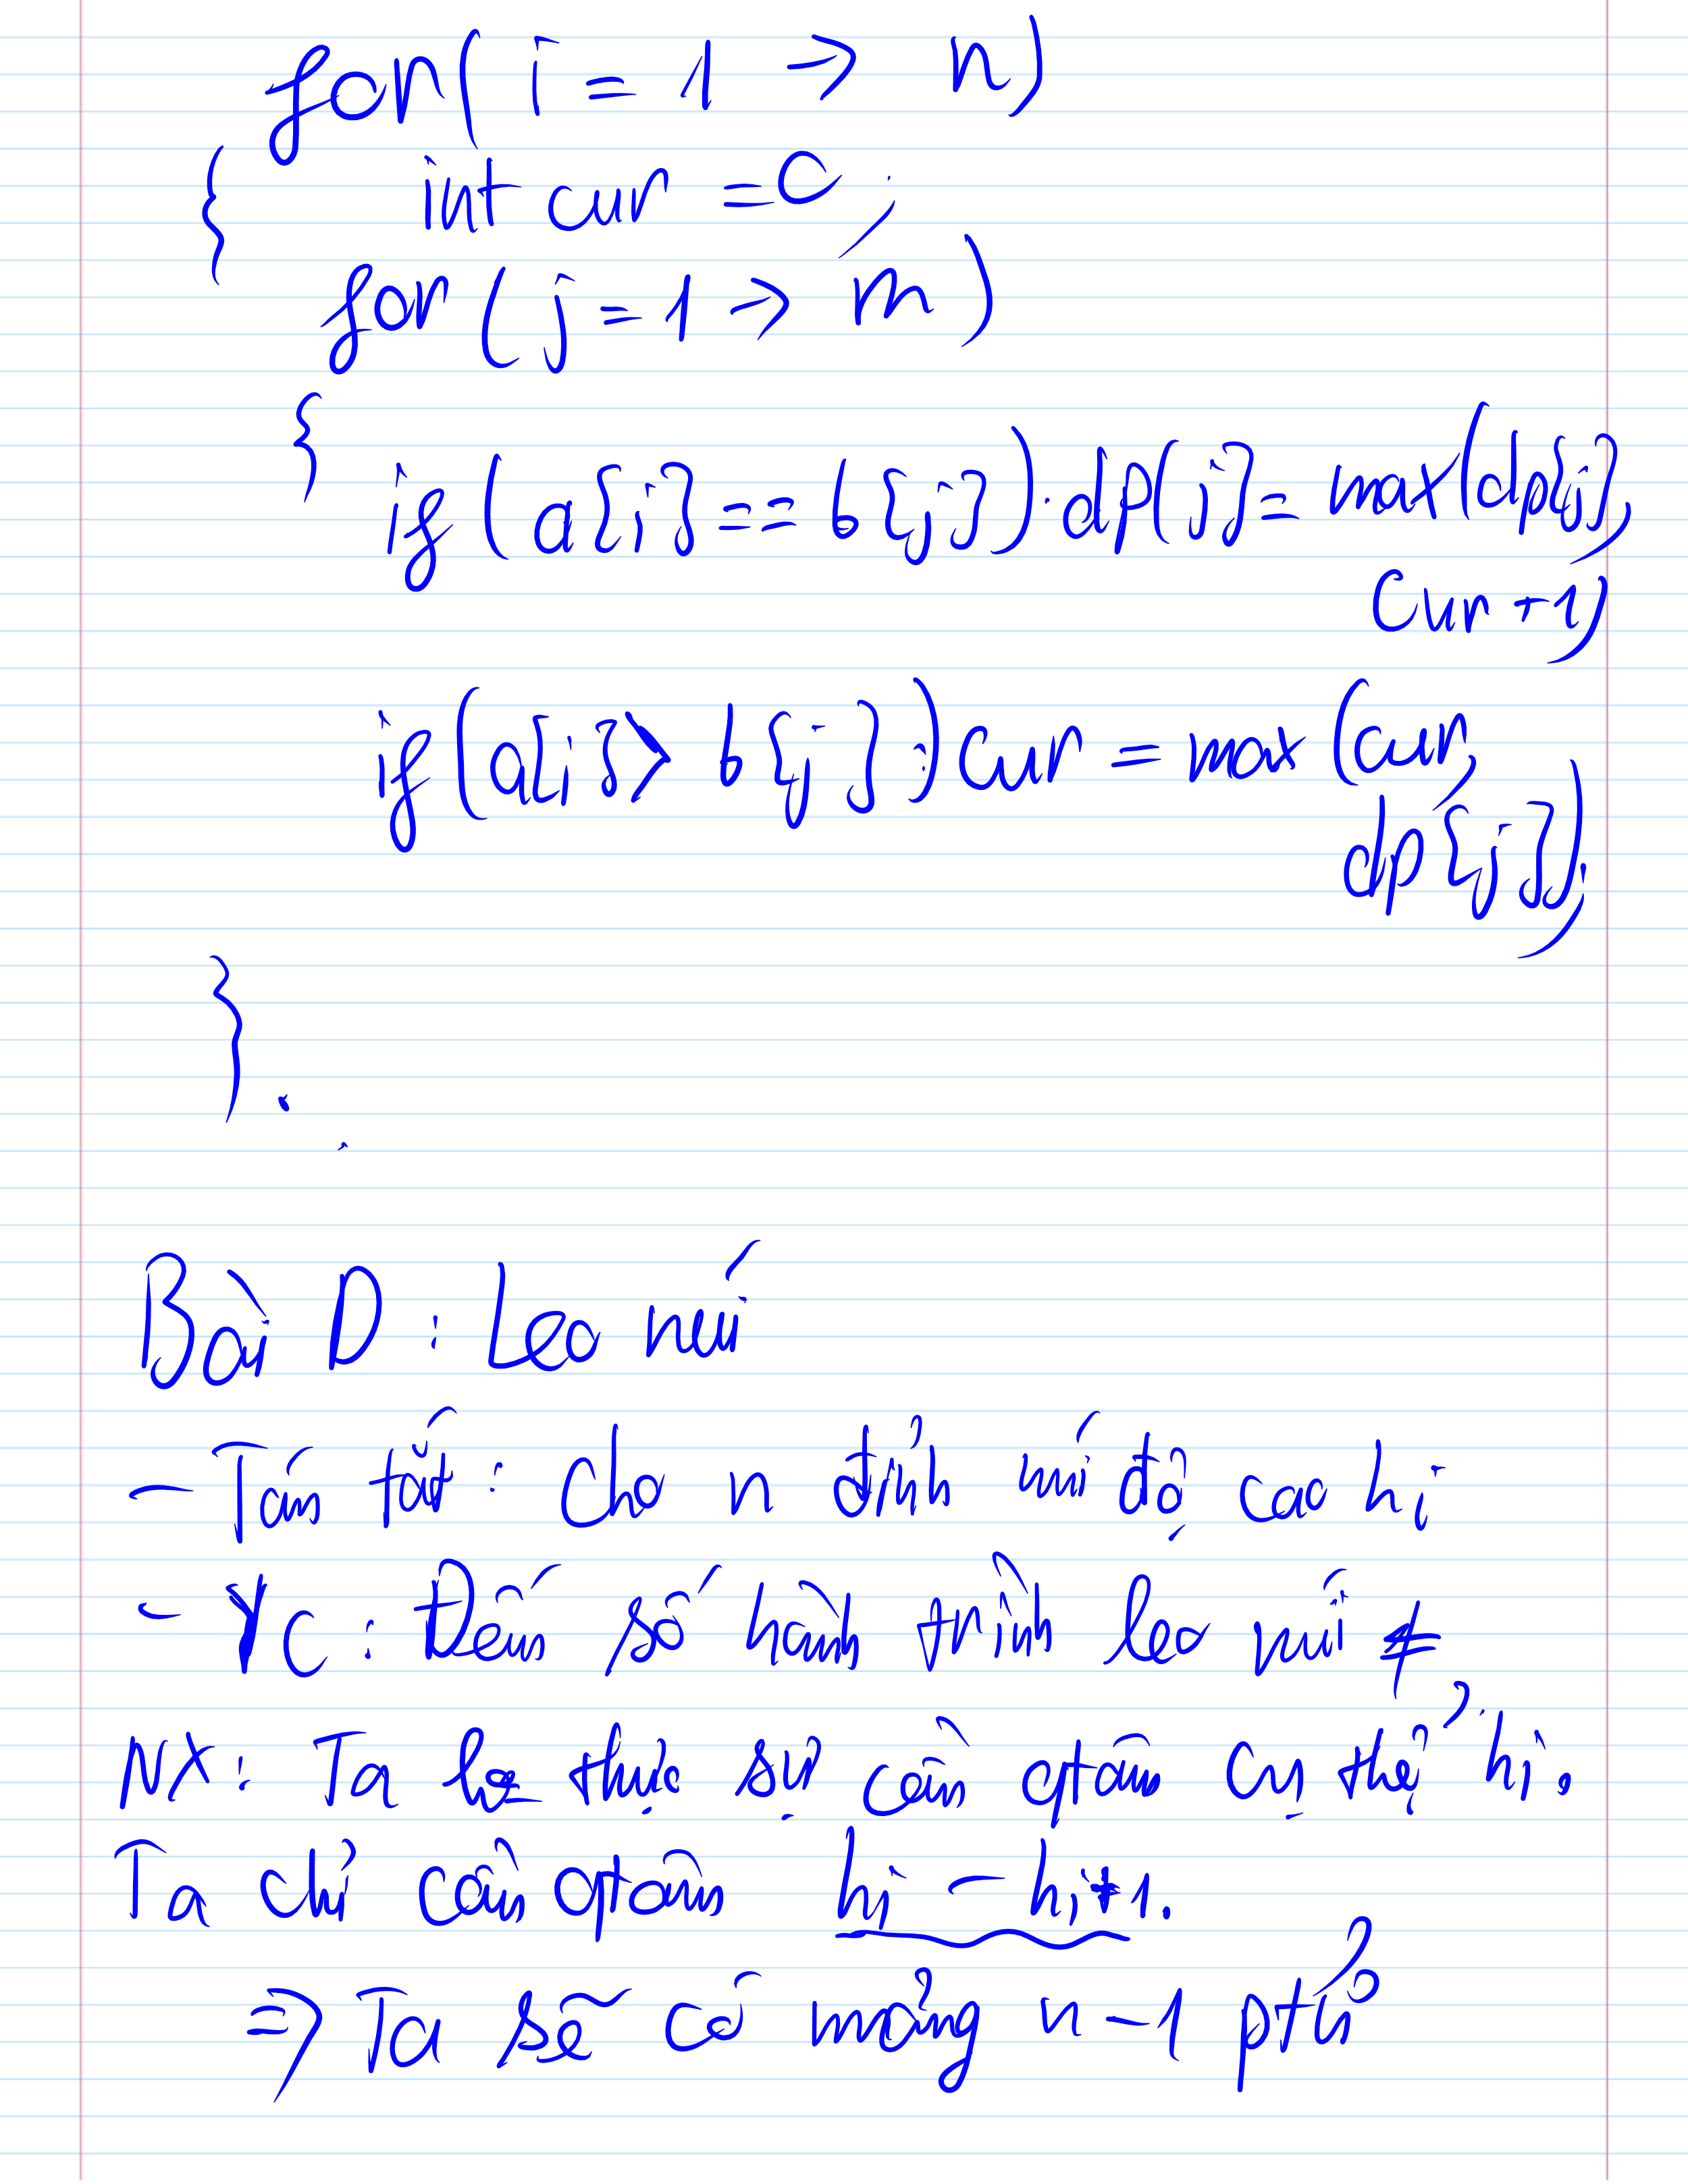 for( i = 1 -> n)
{ int cur = 0;
for( j = 1 -> m)
{
if (a[i] == b[j]) dp[j] = max(dp[j],
cur + 1)
if(a[i] > b[j]) cur = max (cur,
dp[j]);
}
Bài D : Leo núi
- Tóm tắt : cho n đỉnh núi độ cao hi
- YC : Đếm số hành trình leo núi ≠
NX : Ta ko thực sự cần qtâm cụ thể hi.
Ta chỉ cần qtâm hi - hi+1.
=> Ta sẽ có mảng n - 1 ptử